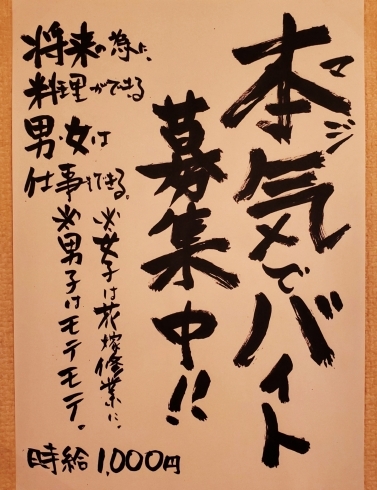 本気でバイト
マジ
募集中!!
将来の為に、
料理ができる
男・女は
仕事もできる。
※女子は花嫁修業に。
※男子はモテモテ。
時給1,000円